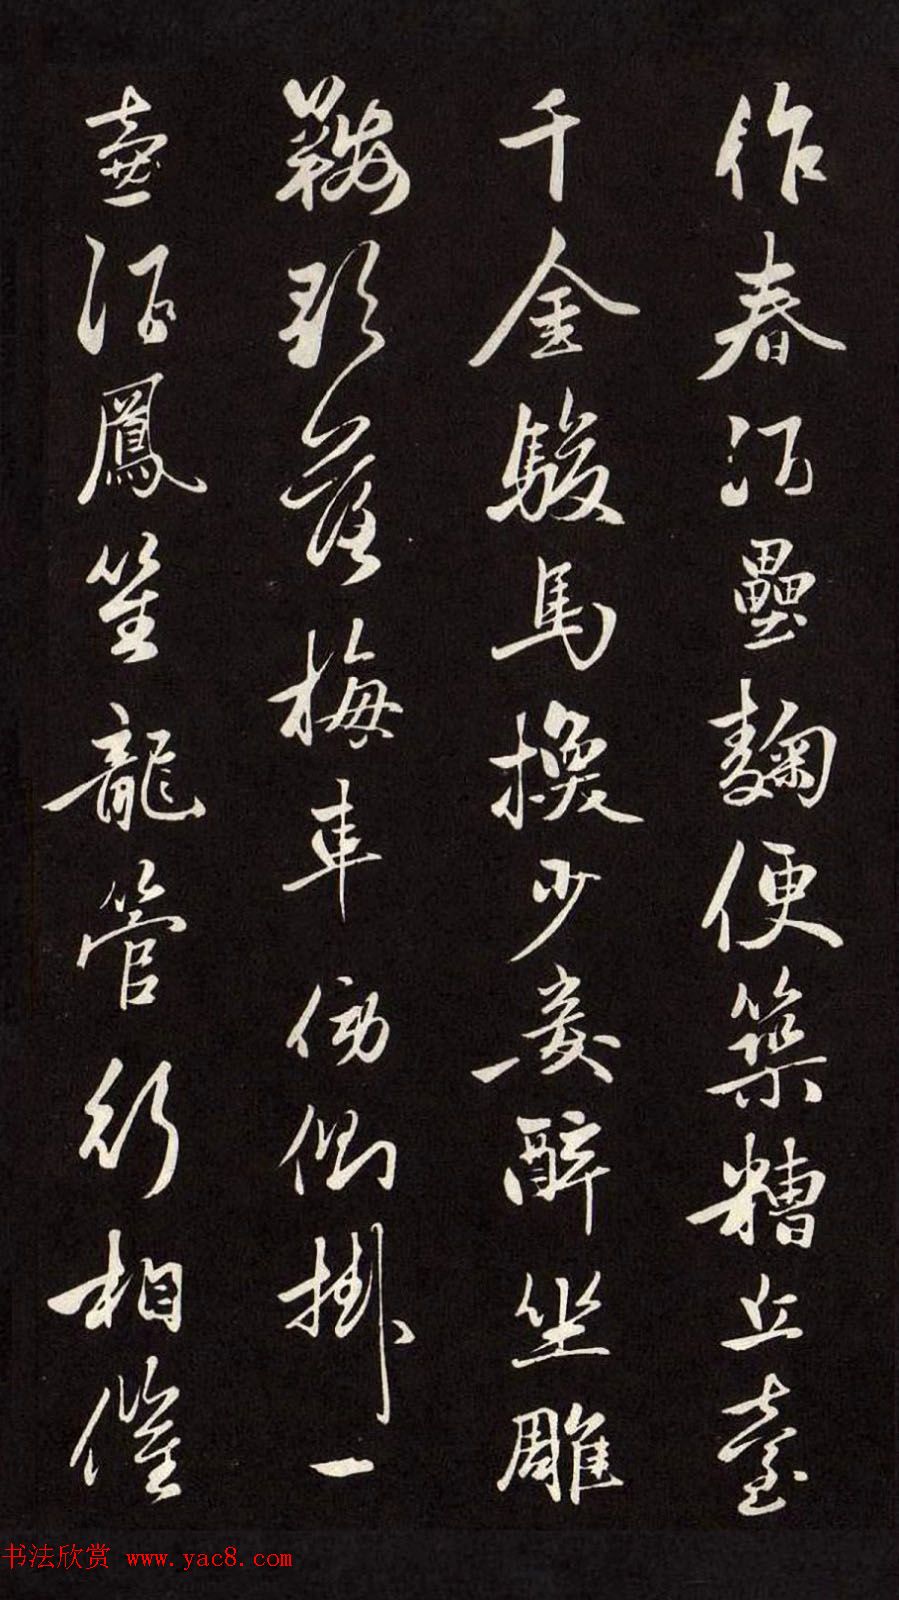 作春酒壘麴便築糟丘臺
千金駿馬換少妾醉坐雕
鞍歌落梅車傍側掛一
壺酒鳳笙龍管行相催
书法欣赏 www.yac8.com